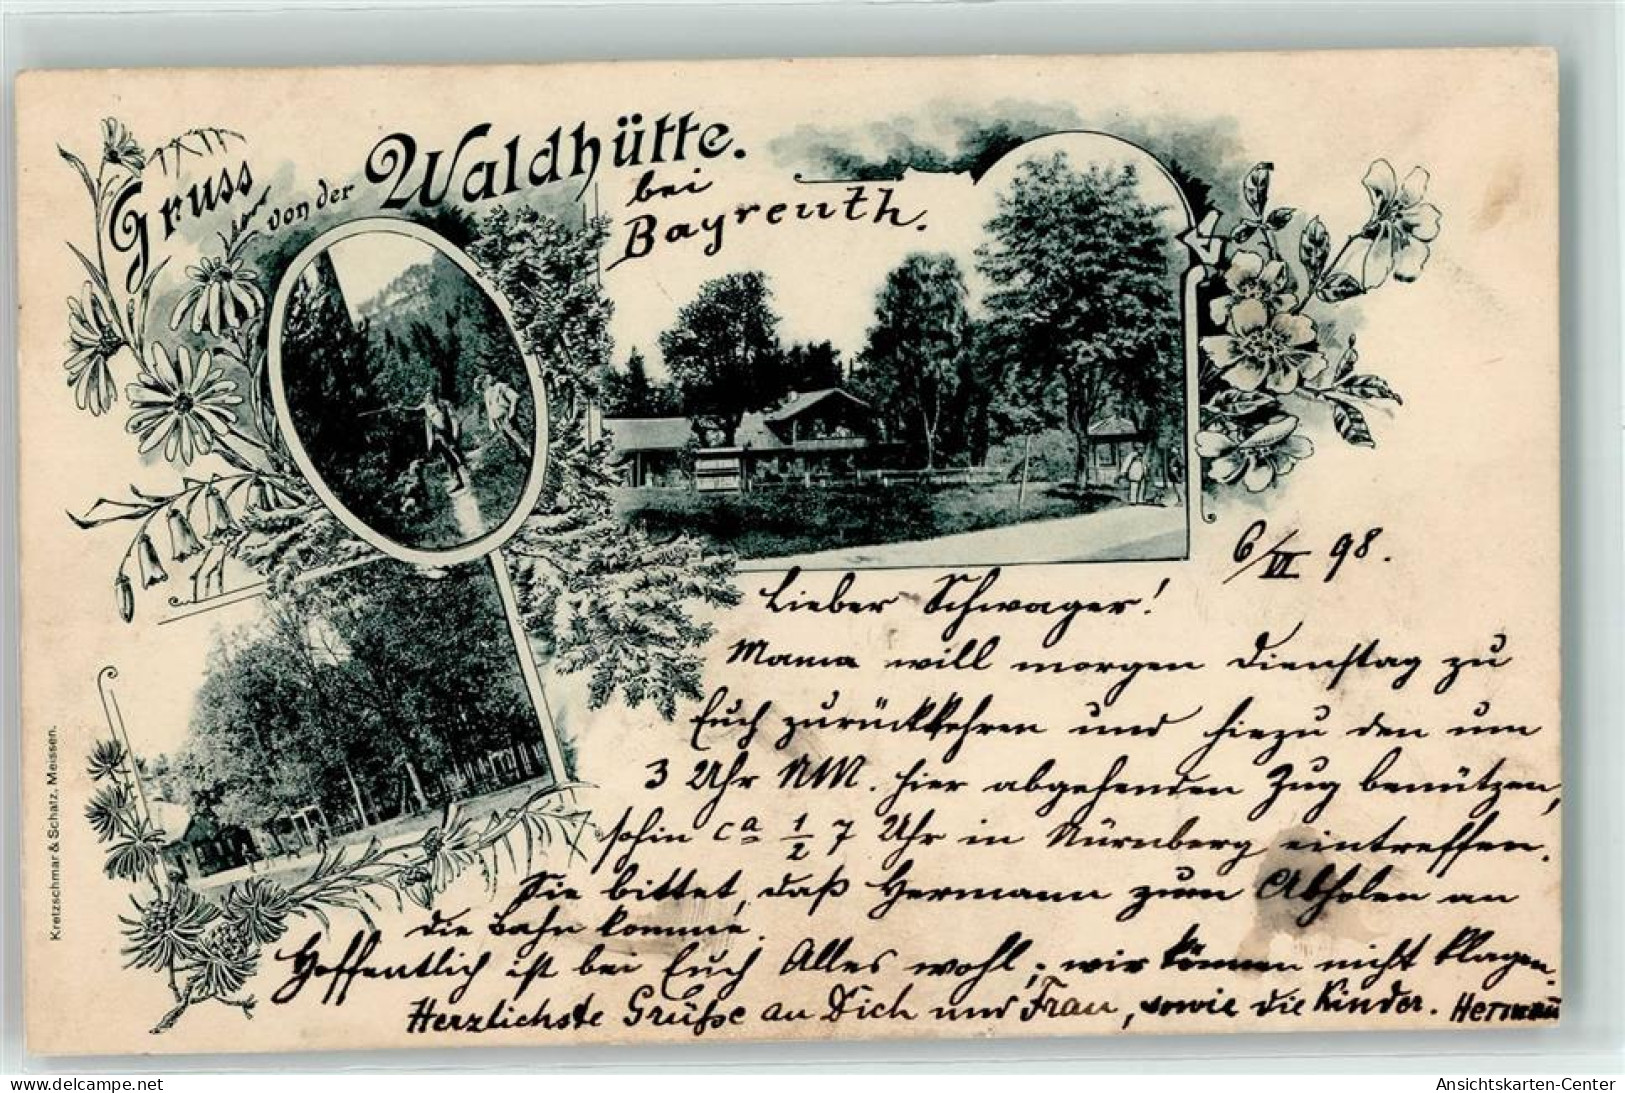 Gruss von der Waldhütte.
bei
Bayreuth.
6/VI 98.
Lieber Schwager!
Mama will morgen Dienstag zu
Euch zurückkehren und hiezu den um
3 Uhr NM. hier abgehenden Zug benützen,
sohin ca 1/2 7 Uhr in Nürnberg eintreffen.
Sie bittet, daß Hermann zum Abholen an
die Bahn komme.
Hoffentlich ist bei Euch Alles wohl; wir können nicht klagen.
Herzlichste Grüße an Dich und Frau, sowie die Kinder. Hermann
Kretzschmar & Schatz, Meissen.
delcampe.net
Ansichtskarten-Center